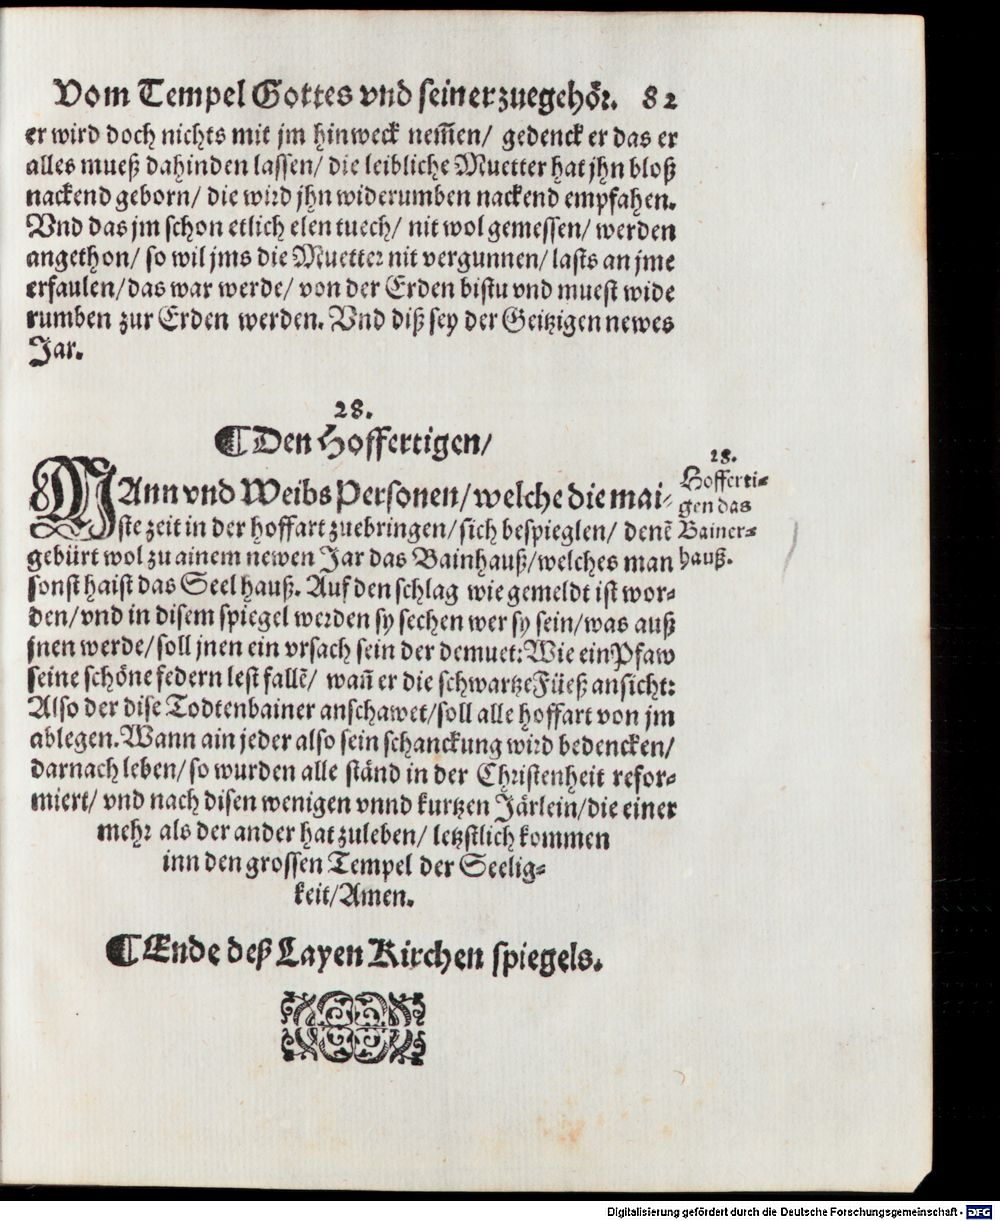 Vom Tempel Gottes vnd seiner zuegehör. 82
er wird doch nichts mit jm hinweck nem̃en/ gedenck er das er
alles mueß dahinden lassen/ die leibliche Muetter hat jhn bloß
nackend geborn/ die wird jhn widerumben nackend empfahen.
Vnd das jm schon etlich elen tuech/ nit wol gemessen/ werden
angethon/ so wil jms die Muetter nit vergunnen/ lasts an jme
erfaulen/ das war werde/ von der Erden bistu vnd muest wide
rumben zur Erden werden. Vnd diß sey der Geitzigen newes
Jar.
28.
¶ Den Hoffertigen/
MAnn vnd Weibs Personen/ welche die mai-
ste zeit in der hoffart zuebringen/ sich bespieglen/ denẽ
gebürt wol zu ainem newen Jar das Bainhauß/ welches man
sonst haist das Seel hauß. Auf den schlag wie gemeldt ist wor-
den/ vnd in disem spiegel werden sy sechen wer sy sein/ was auß
jnen werde/ soll jnen ein vrsach sein der demuet: Wie ein Pfaw
seine schöne federn lest fallẽ/ wañ er die schwartze Füeß ansicht:
Also der dise Todtenbainer anschawet/ soll alle hoffart von jm
ablegen. Wann ain jeder also sein schanckung wird bedencken/
darnach leben/ so wurden alle ständ in der Christenheit refor-
miert/ vnd nach disen wenigen vnnd kurtzen Järlein/ die einer
mehr als der ander hat zuleben/ letzstlich kommen
inn den grossen Tempel der Seelig-
keit/ Amen.
28.
Hofferti-
gen das
Bainer-
hauß.
¶ Ende deß Layen Kirchen spiegels.
Digitalisierung gefördert durch die Deutsche Forschungsgemeinschaft - DFG